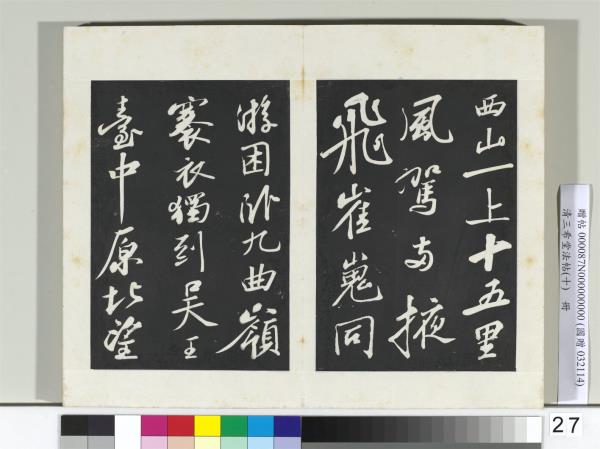 西山一上十五里
風駕兩掖
飛崔嵬同
游困卧九曲嶺
褰衣獨到吳王
臺中原北望
贈帖 000087N000000000 (國贈 032114)
清三希堂法帖(十) 冊
27